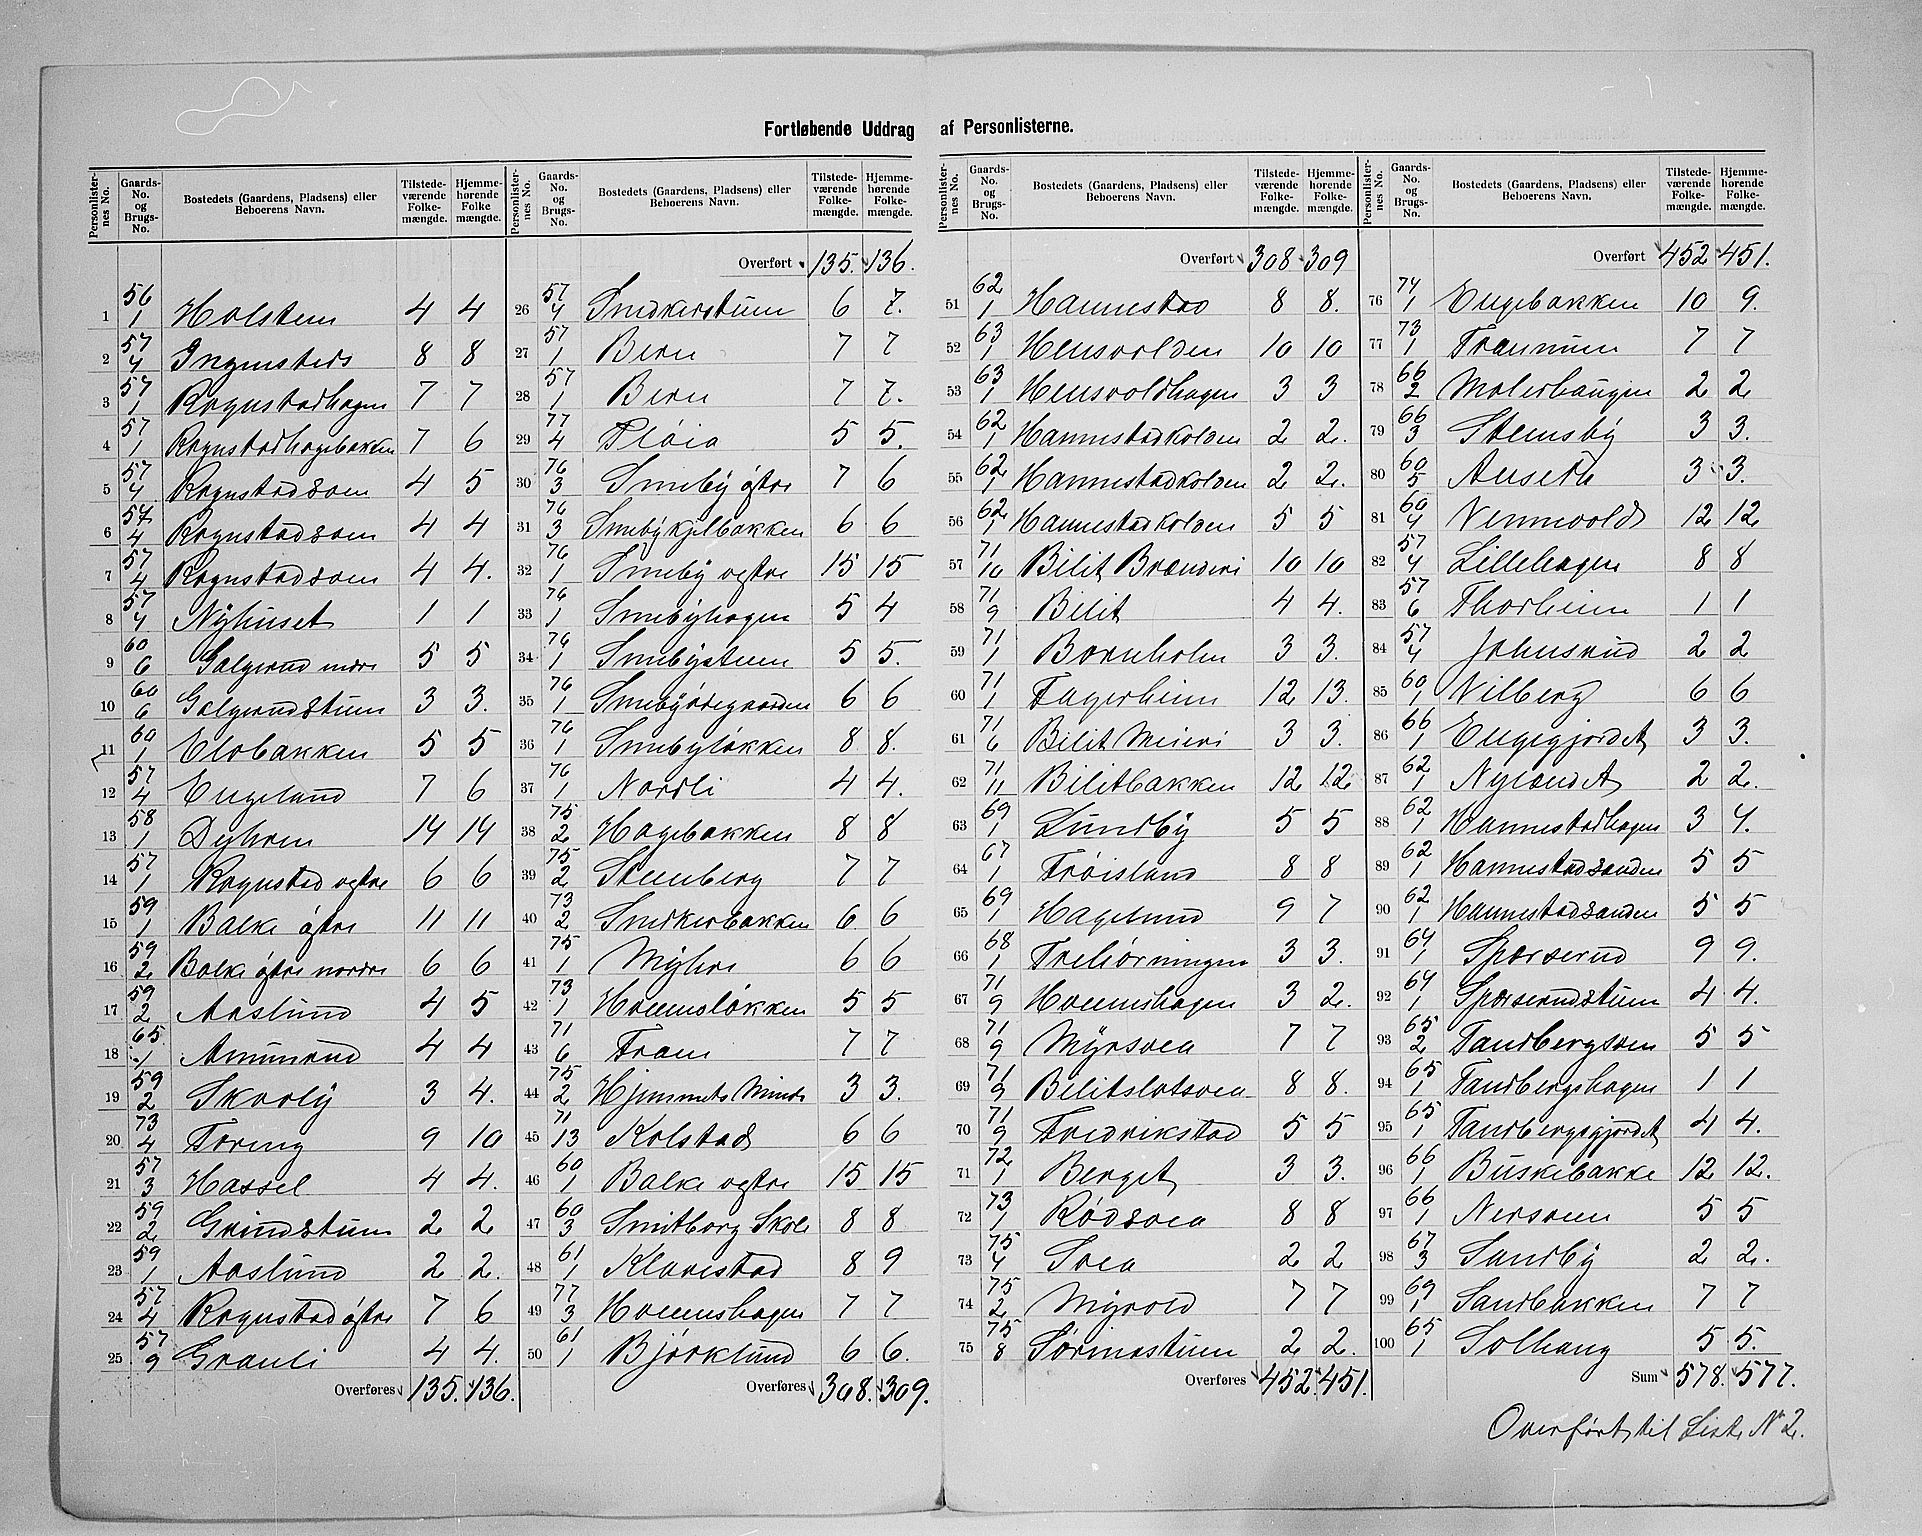 Fortløbende Uddrag af Personlisterne.
Personlister-nes No. Gaards-No. og Brugs-No. Bostedets (Gaardens, Pladsen) eller Beboerens Navn. Tilstede-værende Folke-mængde. Hjemme-hørende Folke mængde.
1 56/1 Holsten 4 4
2 57/4 8 8
3 57/1 Rognstadhagen 7 7
4 57/1 Rognstadhagebakken 7 6
5 57/4 Rognstadsven 4 5
6 57/4 Rognstadsven 4 4
7 57/4 Rognstadsven 4 4.
8 57/4 Nyhuset 1 1
9 60/6 Galgerud 5 5
10 60/6 Galgerudstuen 3 3.
11 60/1 Elvbakken 5 5
12 57/4 Engelund 7 6
13 58/1 Dyhren 14 14
14 57/1 Rognstad vestre 6 6
15 59/1 Balke østre 11 11
16 59/2 Balke østre nordre 6 6
17 59/2 Aaslund 4 5
18 65/1 Ammerud 4 4
19 59/2 Skovly 3 4.
20 73/4 Foring 9 10
21 57/3 Hassel 4 4.
22 59/2 Grindstuen 2 2
23 59/1 Aaslund 2 2.
24 57/4 Rognstad østre 7 6
25 57/9 Granli 4 4.
Overføres 135. 136.
Personlister-nes No. Gaards-No. og Brugs-No. Bostedets (Gaardens, Pladsen) eller Beboerens Navn. Tilstede-værende Folke-mængde. Hjemme-hørende Folke-mængde.
Overført 135. 136.
26 57/4 Snedkerstuen 6 7.
27 57/1 Bern 7 7
28 57/1 Bern 7 7.
29 77/4 Fløia 5 5.
30 76/3 Smeby østre 7 6
31 76/3 Smebykjelbakken 6 6
32 76/1 Smeby vestre 15 15
33 76/1 Smebyhagen 5 4
34 76/1 Smebystuen 5 5.
35 76/1 Smebyødegaarden 6 6
36 76/1 Smebyløkken 8 8.
37 76/1 Nordli 4 4.
38 75/2 Hagebakken 8 8
39 75/2 Stenberg 7 7
40 73/2 Snedkerbakken 6 6
41 75/1 Myhre 6 6
42 73/1 Hoemsløkken 5 5
43 71/6 Fram 7 7
44 75/2 Hjemmets Minde 3 3.
45 71/13 Kolstad 6 6
46 60/1 Balke vestre 15 15
47 60/3 Smitborg Skole 8 8
48 61/1 Klavestad 8 9
49 77/3 Hoemshagen 7 7
50 61/1 Bjørklund 6 6.
Overføres 308. 309.
Personlister-nes No. Gaards-No. og Brugs-No. Bostedets (Gaardens, Pladsen) eller Beboerens Navn. Tilstede-værende Folke-mængde. Hjemme-hørende Folke-mængde.
Overført 308. 309
51 62/1 Hannestad 8 8.
52 63/1 Hensvolden 10 10
53 63/1 Hensvoldhagen 3 3
54 62/1 Hannestadkolden 2 2.
55 62/1 Hannestadkolden 2 2.
56 62/1 Hannestadkolden 5 5
57 71/10 Bilit Brænderi 10 10
58 71/9 Bilit 4 4.
59 71/1 Bornholm 3 3.
60 71/1 Fagerheim 12 13.
61 71/6 Bilit Meieri 3 3.
62 71/11 Bilitbakken 12 12
63 69/1 Lundby 5 5
64 67/1 Frøisland 8 8
65 69/1 Hagelund 9 7
66 68/1 Trehørningen 3 3.
67 71/9 Hoemshagen 3 2.
68 71/9 Myrsvea 7 7
69 71/9 Bilitslotsvea 8 8.
70 71/9 Fredrikstad 5 5
71 72/1 Berget 3 3.
72 73/1 Rødsvea 8 8
73 75/4 Svea 2 2
74 75/2 Myrvold 7 7
75 75/8 Sørinastuen 2 2.
Overføres 452. 451.
Personlister-nes No. Gaards-No. og Brugs-No. Bostedets (Gaardens, Pladsen) eller Beboerens Navn. Tilstede-værende Folke-mængde. Hjemme-hørende Folke-mængde.
Overført 452 451.
76 74/1 Engebakken 10 9.
77 73/1 Fraunum 7 7
78 66/2 Malerhaugen 2 2
79 66/3 Stensby 3 3.
80 60/5 Anseth 3 3.
81 60/4 Vennevold 12 12
82 57/4 Lillehagen 8 8
83 57/6 Thorheim 1 1
84 57/4 Johnsrud 2 2
85 60/1 Vilberg 6 6
86 66/1 Engegjordet 3 3.
87 62/1 Nylandet 2 2.
88 62/1 Hannestadhagen 3 4.
89 62/1 Hannestadsanden 5 5
90 62/1 Hannestadsanden 5 5
91 64/1 Sparserud 9 9.
92 64/1 Sparserudstuen 4 4.
93 65/2 Tandbergsven 5 5
94 65/1 Tandbergshagen 1 1
95 65/1 Tandbergsgjordet 4 4.
96 66/1 Buskebakke 12 12.
97 66/1 Nersveen 5 5
98 67/3 Sandby 2 2.
99 69/1 Sandbakken 7 7
100 65/1 Solhaug 5 5.
Sum 578. 577.
Overført til Liste No 2.